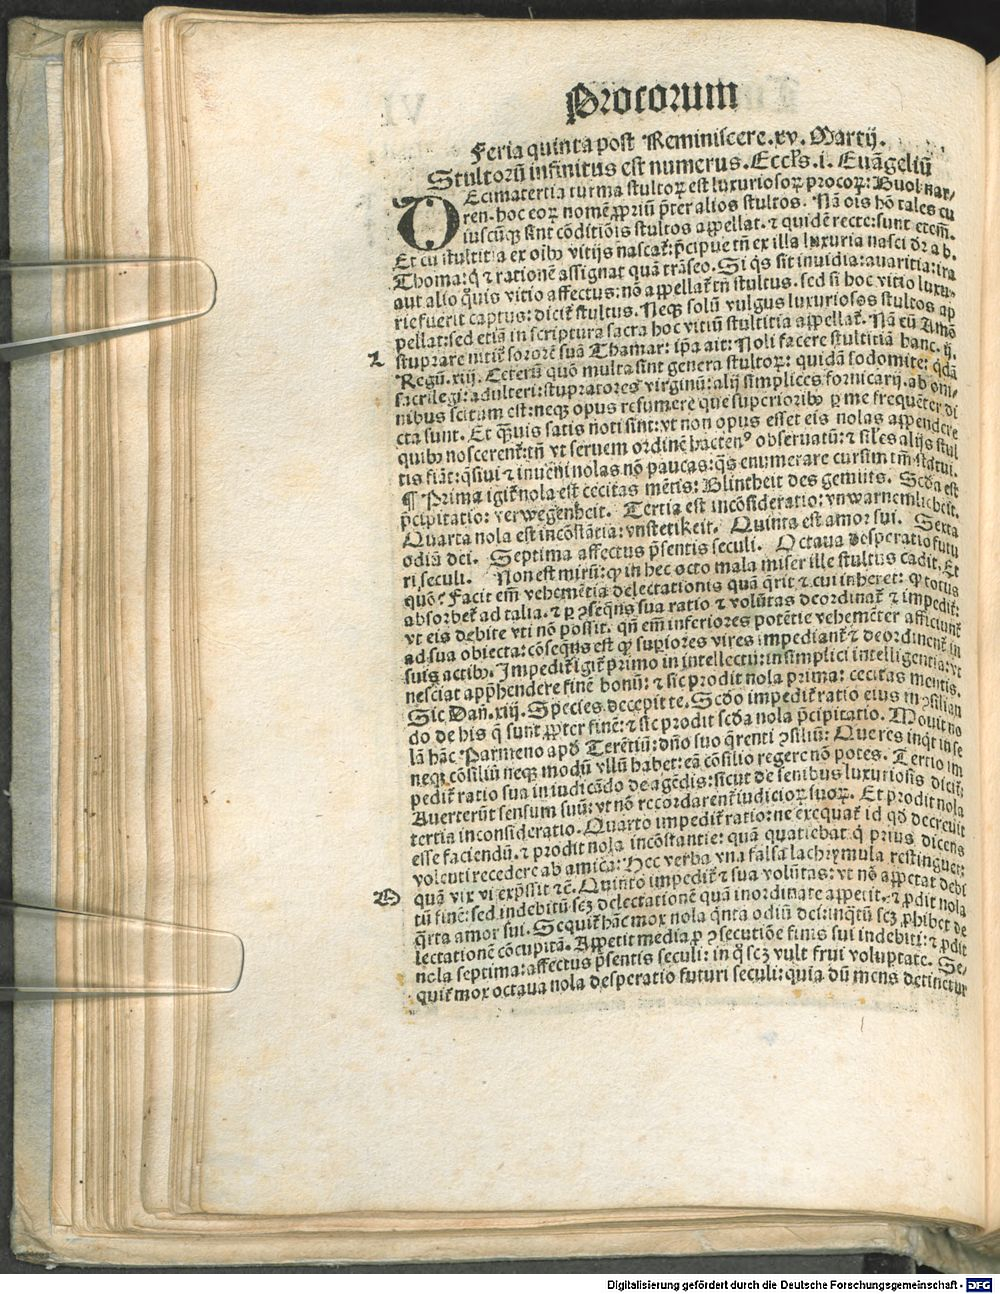 Procorum
Feria quinta post Reminiscere.xv. Martij.
Stultorū infinitus est numerus. Eccl's.i. Euāgeliū
DEcimatertia turma stultoꝝ est luxuriosoꝝ procoꝝ: Buol nar/
ren. hoc eoꝝ nomē ꝓpriū p̄ter alios stultos. Nā oīs hō tales cu
iuscūqꝫ sint cōditiōis stultos appellat. ⁊ quidē recte: sunt etem̄.
Et cū stultitia ex oībꝰ vitijs nascat᷑: p̄cipue tn̄ ex illa luxuria nasci dr̄ a b.
Thoma: q̇ ⁊ rationē assignat quā trāseo. Si q̇s sit inuidia: auaritia: ira
aut alio q̇uis vitio affectus: nō appellat᷑ tn̄ stultus. sed si hoc vitio luxu/
rie fuerit captus: dicit᷑ stultus. Neqꝫ solū vulgus luxuriosos stultos ap
pellat: sed etiā in scriptura sacra hoc vitiū stultitia appellat᷑. Nā cū Amō
L stuprare nitit᷑ sororē suā Thamar: ip̄a ait: Noli facere stultitiā hanc. ij.
Regū. xiij. Ceterū quō multa sint genera stultoꝝ: quidā sodomite: q̇dā
sacrilegi: adulteri: stupratores virginū: alij simplices fornicarij. ab om/
nibus scitum est: neqꝫ opus resumere que superioribꝰ ꝑ me frequēter di
cta sunt. Et q̄uis satis noti sint: vt non opus esset eis nolas appendere
quibꝰ noscerent᷑: tn̄ vt seruem ordinē hactenꝰ obseruatū: ⁊ siles alijs stul
tis fiāt: q̄siui ⁊ inueni nolas nō paucas: q̄s enumerare cursim tm̄ statui.
¶ Prima igit᷑ nola est cecitas mētis: Blintheit des gemüts. Scd́a est
p̄cipitatio: verwegenheit. Tertia est incōsideratio: vnwarnemlicheit.
Quarta nola est incōstātia: vnstetikeit. Quinta est amor sui. Sexta
odiū dei. Septima affectus p̄sentis seculi. Octaua desperatio futu
ri seculi. Non est mirū: ꝙ in hec octo mala miser ille stultus cadit. Et
quō? Facit em̄ vehemētia delectationis quā q̄rit ⁊ cui inheret: ꝙ totus
absorbet᷑ ad talia. ⁊ ꝑ ꝯseq̄ns sua ratio ⁊ volūtas deordinat᷑ ⁊ impedit᷑:
vt eis debite vti nō possit. qn̄ em̄ inferiores potētie vehemēter afficiunt᷑
ad sua obiecta: cōseq̄ns est ꝙ supiores vires impediant᷑ ⁊ deordinent᷑ in
suis actibꝰ. Impedit᷑ igit᷑ primo in intellectu: in simplici intelligentia: vt
nesciat app̄hendere finē bonū: ⁊ sic prodit nola prima: cecitas mentis.
Sic Dan̄. xiij. Species decepit te. Scd́o impedit᷑ ratio eius in ꝯsilian
do de his q̄ sunt ꝓpter finē: ⁊ sic prodit scd́a nola p̄cipitatio. Mouit no
lā hāc Parmeno apd́ Terētiū: dn̄o suo q̄renti ꝯsiliū: Que res inqt in se
neqꝫ cōsiliū neqꝫ modū vllū habet: eā cōsilio regere nō potes. Tertio im
pedit᷑ ratio sua in iudicādo de agēdis: sicut de senibus luxuriosis dicit᷑:
Auerterūt sensum suū: vt nō recordarent᷑ iudicioꝝ suoꝝ. Et prodit nola
tertia inconsideratio. Quarto impedit᷑ ratio: ne exequat᷑ id qd́ decreuit
esse faciendū. ⁊ prodit nola incōstantie: quā quatiebat q̇ prius dicens
volenti recedere ab amica: Hec verba vna falsa lachrymula restinguet:
O quā vix vi exp̄ssit ⁊c̄. Quinto impedit᷑ ⁊ sua volūtas: vt nō appetat debi
tū finē: sed indebitū scꝫ delectationē quā inordinate appetit. ⁊ ꝓdit nola
q̄rta amor sui. Sequit᷑ hāc mox nola q̄nta odiū dei: inq̄tū scꝫ ꝓhibet de
lectationē cōcupitā. Appetit media ꝑ ꝯsecutiōe finis sui indebiti: ⁊ ꝓdit
nola septima: affectus p̄sentis seculi: in q̇ scꝫ vult frui voluptate. Se/
quit᷑ mox octaua nola desperatio futuri seculi: quia dū mens detinetur
Digitalisierung gefördert durch die Deutsche Forschungsgemeinschaft - DFG